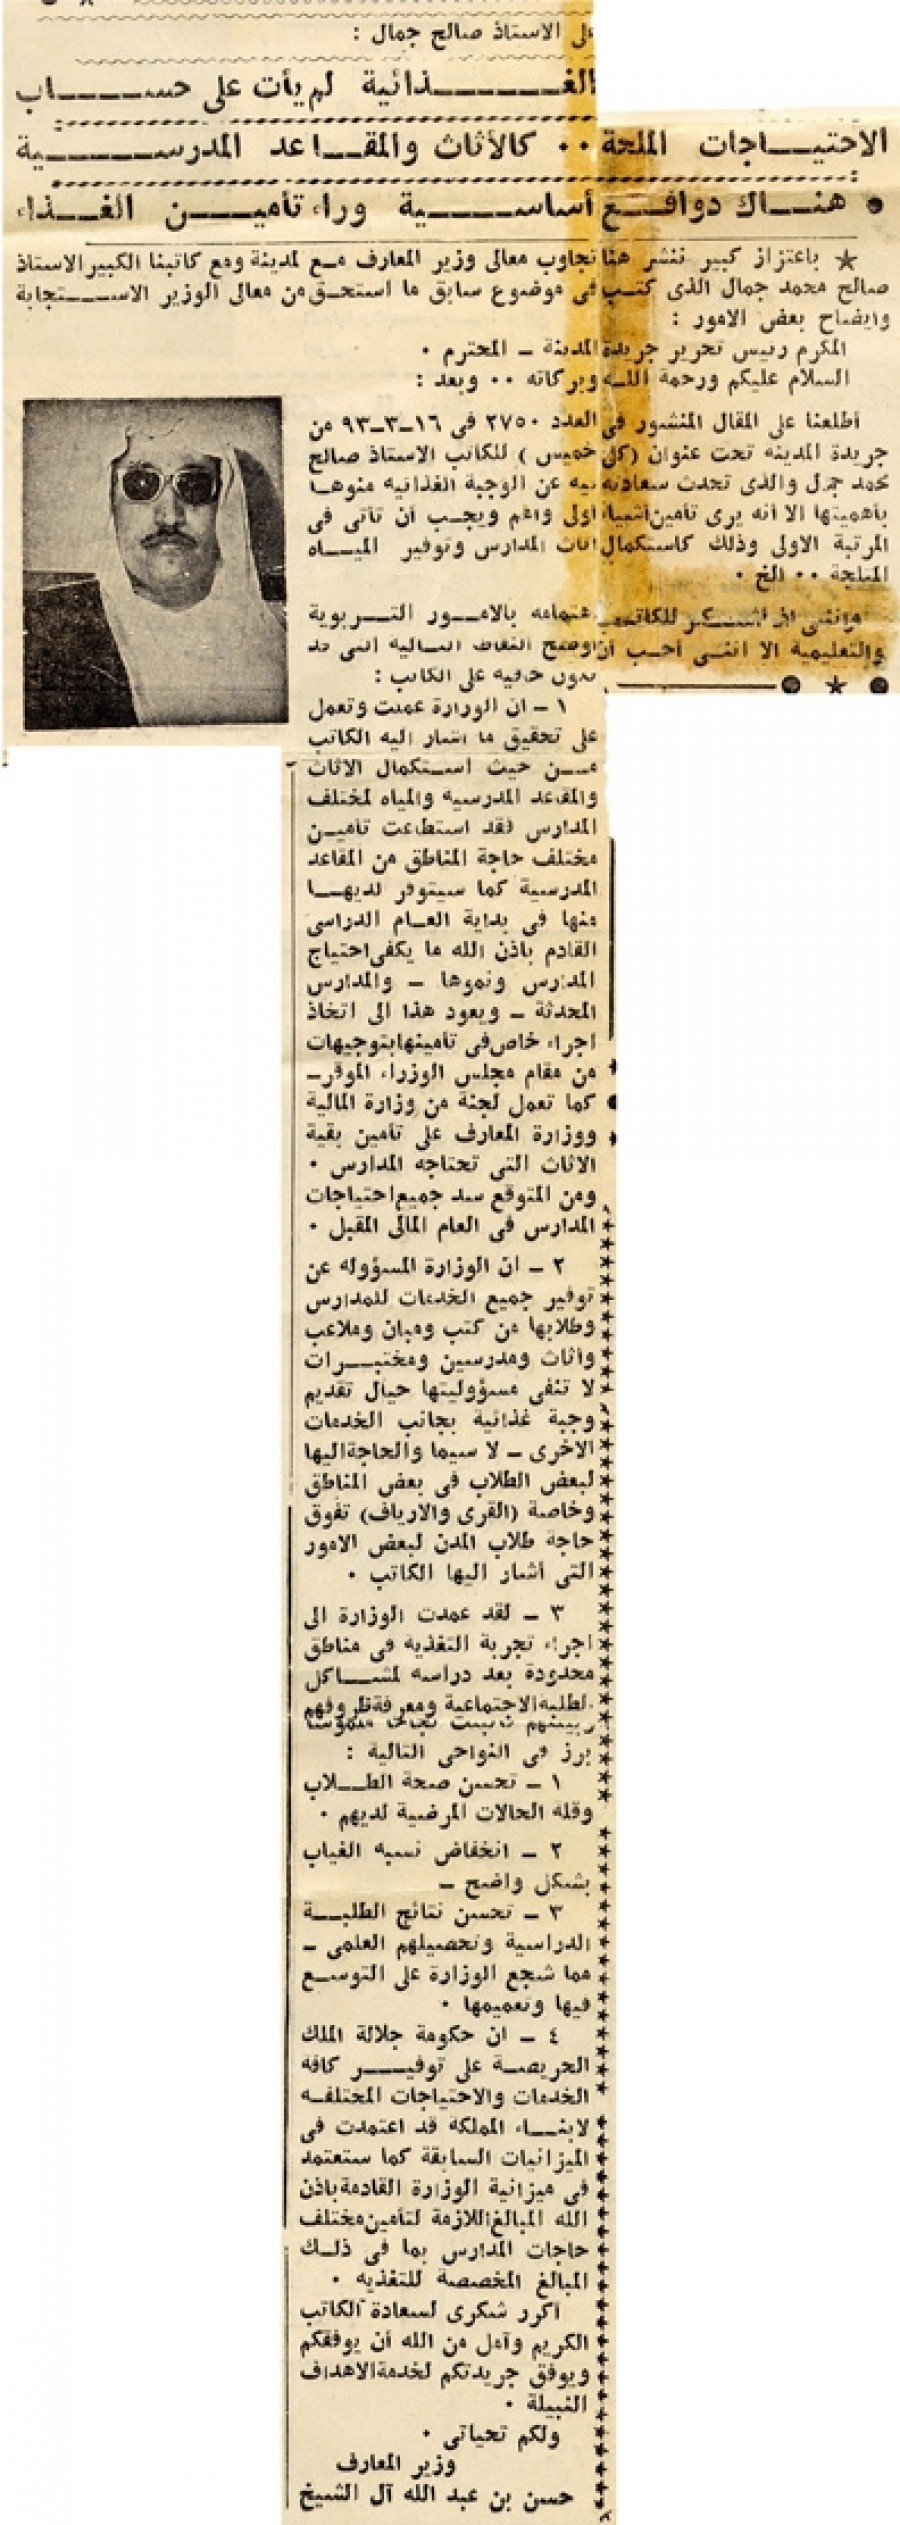 على الاستاذ صالح جمال :
الغـــذائية لم يأت على حســـاب
الاحتيـــاجات الملحة ٠٠ كالأثاث والمقـاعد المدرســـية
● هنـــاك دوافـــع أساســـية وراء تأميـــن الغـــذاء
★ باعتزاز كبير ننشر هنا تجاوب معالى وزير المعارف مـع لمدينة ومع كاتبنا الكبير الاستاذ
صالح محمد جمال الذى كتـب فى موضوع سابق ما استحـق من معالى الوزير الاستـــجابة
وايضاح بعض الامور :
المكرم رئيس تحرير جريدة المدينة ــ المحترم ٠
السلام عليكم ورحمة اللـه وبركاته ٠٠ وبعد :
أطلعنا على المقال المنشور فى العدد ٢٧٥٠ فى ١٦ــ٣ــ٩٣ من
جريدة المدينه تحت عنوان (كل خميس) للكاتب الاستاذ صالح
محمد جمال والذى تحدث سعادته فيه عن الوجبة الغذائيه منوهـا
بأهميتها الا أنه يرى تأمين أشياء أولى واهم ويجـب أن تأتى فى
المرتبة الاولى وذلك كاستكمال اثاث المدارس وتوفير الميـــاه
المثلجة ٠٠ الخ ٠
وإننى اذ أشـــكر للكاتب اهتمامه بالامـــور التـــربوية
والتعليمية الا اننـى أحـب أن أوضح النقاط التـاليه التى قد
تكون خافيه على الكاتب :
١ ــ ان الوزارة عملت وتعمل
على تحقيق ما اشار اليه الكاتب
مـــن حيث استكمال الاثاث
والمقاعد المدرسيه والمياه لمختلف
المدارس فقد استطاعت تأميـن
مختلف حاجة المناطق من المقاعد
المدرسية كما سيتوفر لديهـــا
منها فى بداية العـام الدراسى
القادم باذن الله ما يكفى احتياج
المدارس ونموها ــ والمدارس
المحدثة ــ ويعود هذا الى اتخاذ
اجراء خاص فى تأمينها بتوجيهات
من مقام مجلس الوزراء الموقرــ
كما تعمل لجنة من وزارة المالية
ووزارة المعارف على تأمين بقية
الاثاث التى تحتاجه المدارس ٠
ومن المتوقع سد جميع احتياجات
المدارس فى العام المالى المقبل ٠
٢ ــ ان الوزارة المسؤوله عن
توفير جميع الخدمات للمدارس
وطلابها من كتب ومبان وملاعب
واثاث ومدرسين ومختبـــرات
لا تنفى مسؤوليتها حيال تقديم
وجبة غذائية بجانب الخدمات
الاخرى ــ لا سيما والحاجة اليها
لبعض الطلاب فى بعض المناطق
وخاصة (القرى والارياف) تفوق
حاجة طلاب المدن لبعض الامور
التى أشار اليها الكاتب ٠
٣ ــ لقد عمدت الوزارة الى
اجراء تجربة التغذية فى مناطق
محدودة بعد دراسه لمشـــاكل
لطلبه الاجتماعية ومعرفة ظروفهم
برز فى النواحى التالية :
١ ــ تحسن صحة الطـــلاب
وقلة الحالات المرضية لديهم ٠
٢ ــ انخفاض نسبه الغياب
بشكل واضح ــ
٣ ــ تحسن نتائج الطلبـــة
الدراسية وتحصيلهم العلمى ــ
مما شجع الوزارة على التوسـع
فيها وتعميمها ٠
٤ ــ ان حكومة جلالة الملك
الحريصـة على توفيـــر كافة
الخدمات والاحتياجات المختلفـه
لابنـــاء المملكة قد اعتمدت فى
الميزانيات السابقة كما ستعتمد
فى ميزانية الوزارة القادمة باذن
الله المبالغ اللازمة لتأمين مختلف
حاجات المدارس بما فى ذلـك
المبالغ المخصصة للتغذيه ٠
اكرر شكرى لسعادة الكاتب
الكريم وآمل من الله أن يوفقكم
ويوفق جريدتكم لخدمة الاهداف
النبيلة ٠
ولكم تحياتى ٠
وزير المعارف
حسن بن عبد الله آل الشيخ